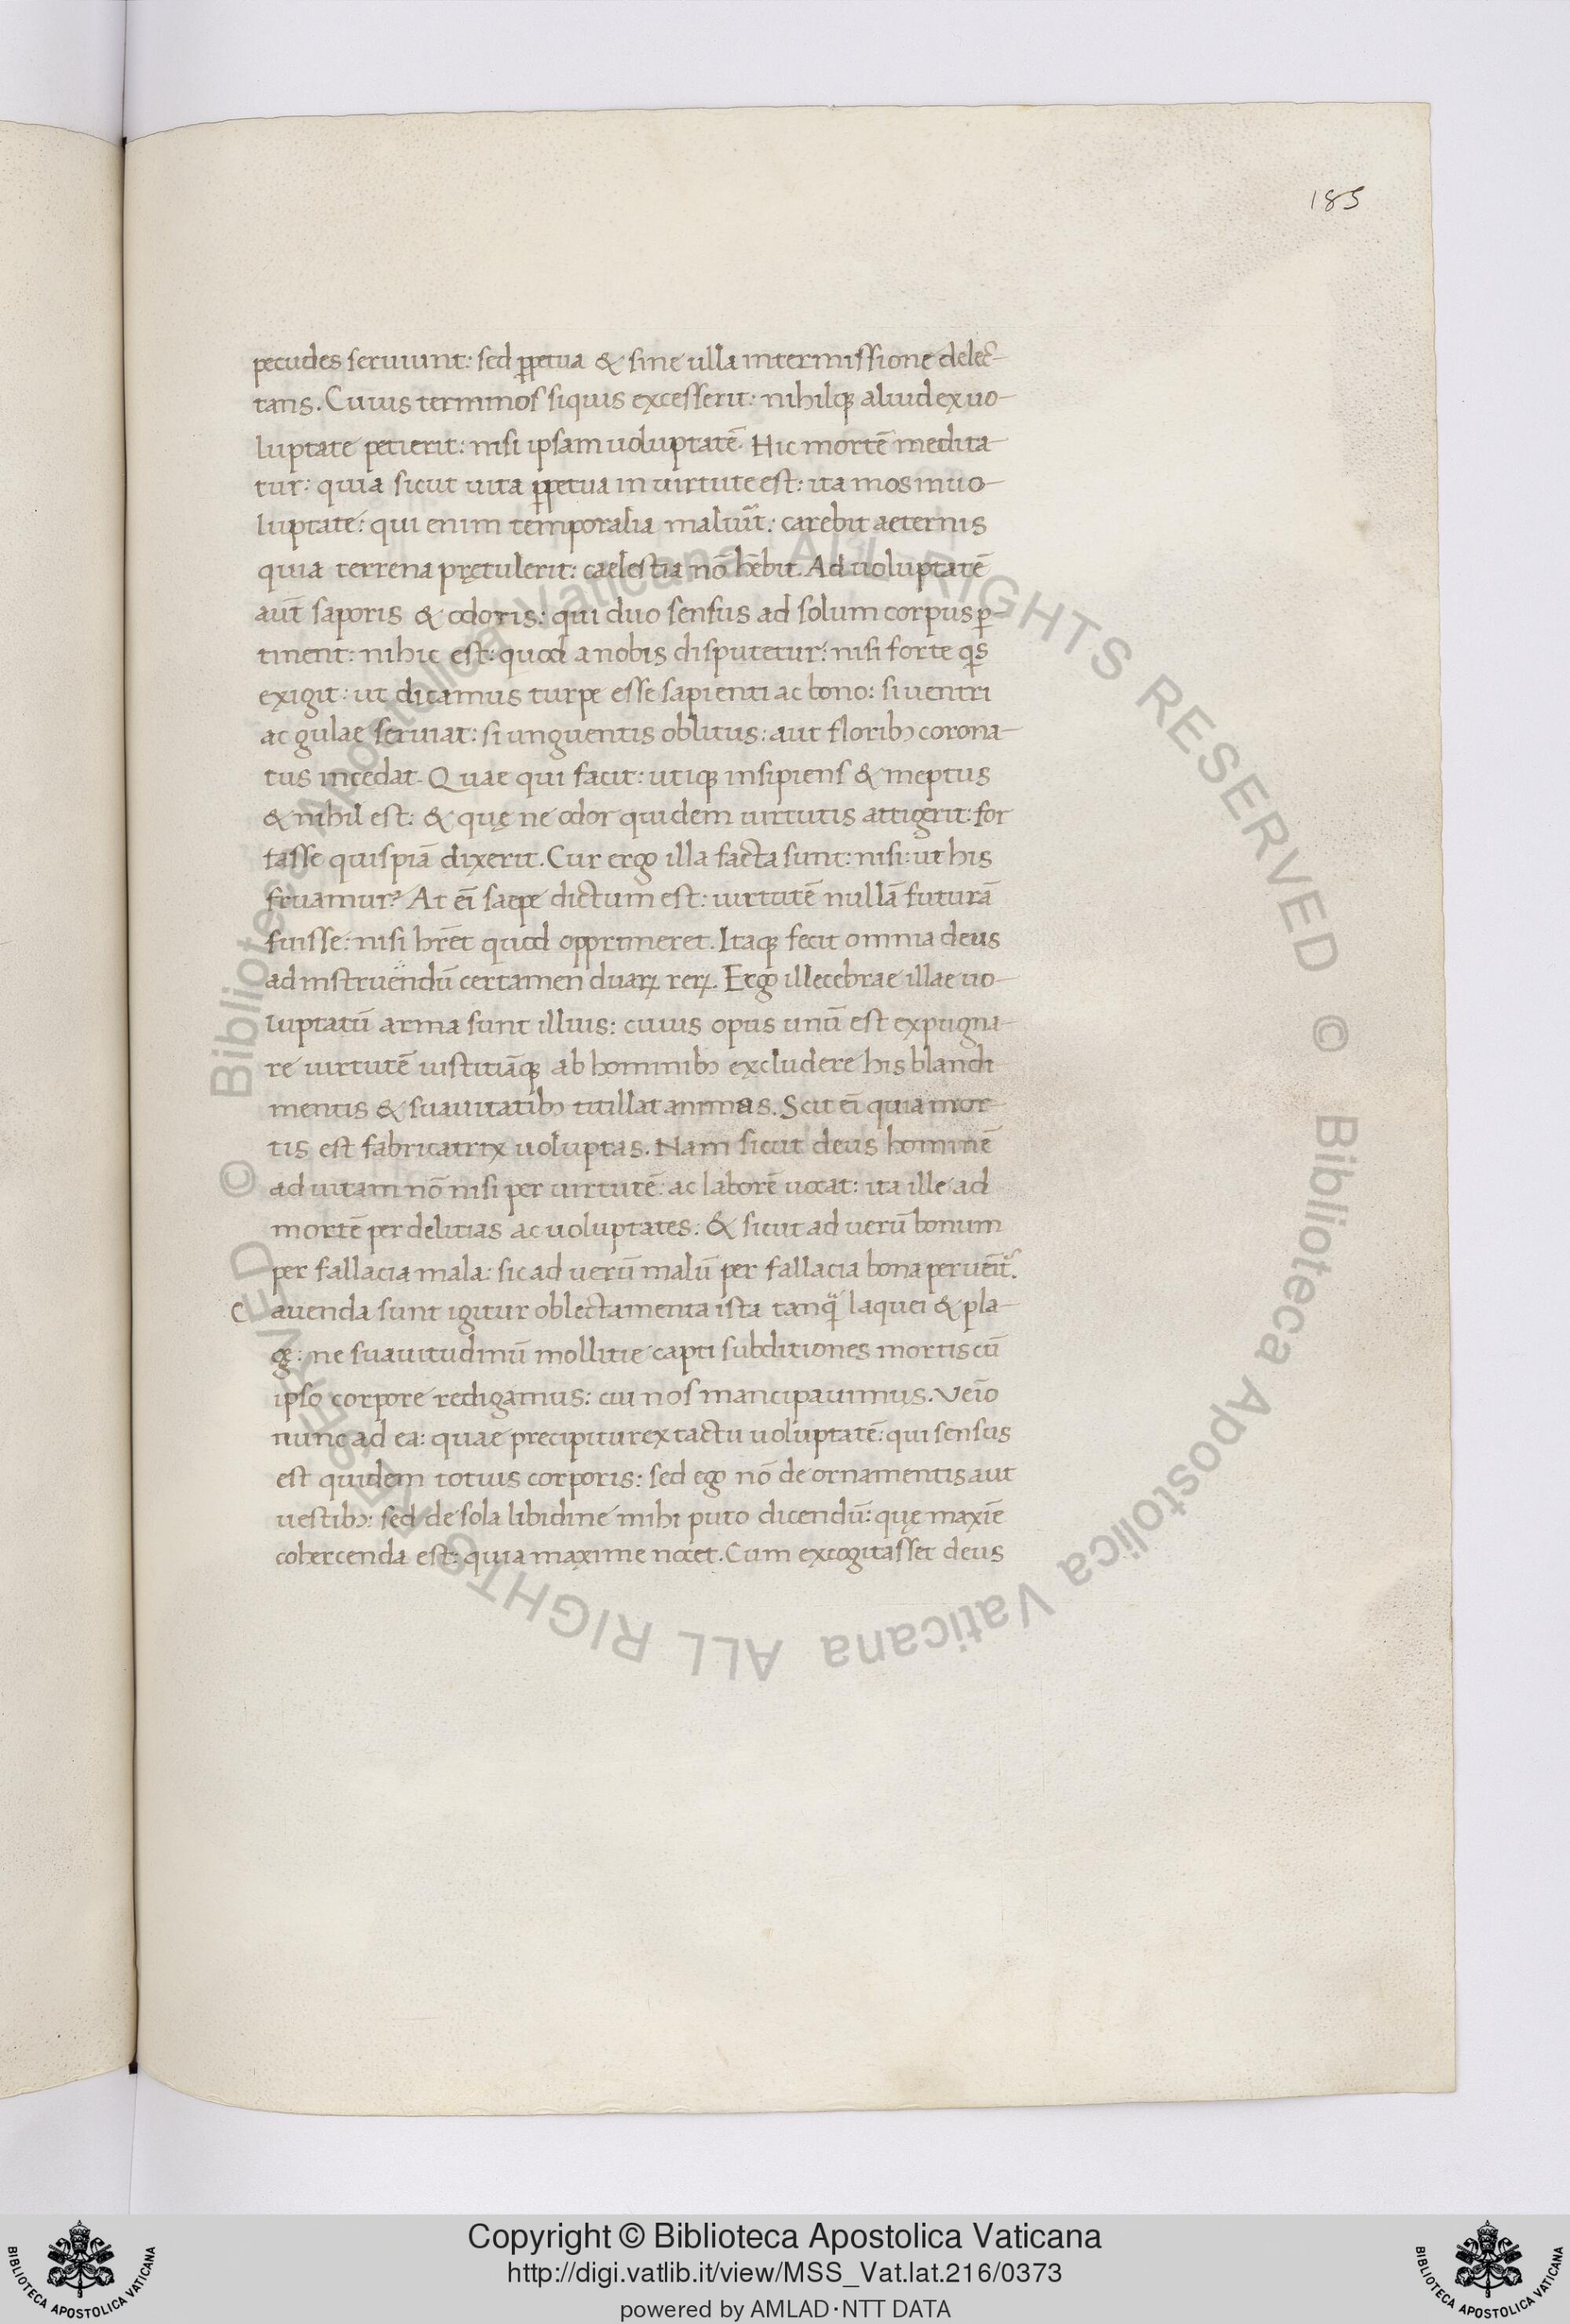 185
pecudes seruiunt: sed ꝑpetua & sine ulla intermissione delec-
tans. Cuius terminos siquis excesserit: nihilqꝫ aliud ex uo-
luptate petierit: nisi ipsam uoluptatē. Hic mortē medita-
tur: quia sicut uita ꝑpetua in uirtute est: ita mos in uo-
luptate: qui enim temporalia maluīt: carebit aeternis
quia terrena prętulerit: caelestia nō hēbit. Ad uoluptatē
aūt saporis & odoris: qui duo sensus ad solum corpus ꝑ-
tinent: nihic est: quod a nobis disputetur: nisi forte qͥs
exigit: ut dicamus turpe esse sapienti ac bono: si uentri
ac gulae seruiat: si unguentis oblitus: aut floribꝫ corona-
tus incedat. Quae qui facit: utiqꝫ insipiens & ineptus
& nihil est: & quę ne odor quidem uirtutis attigerit: for
tasse quispiā dixerit. Cur ergo illa facta sunt: nisi: ut his
fruamur? At eī saepe dictum est: uirtutē nullā futurā
fuisse: nisi hrēt quod opprimeret. Itaqꝫ fecit omnia deus
ad instruendū certamen duaꝝ reꝝ. Ergo illecebrae illae uo-
luptatū arma sunt illius: cuius opus unū est expugna-
re uirtutē iustitiāqꝫ ab hominibꝫ excludere his blandi
mentis & suauitatibꝫ titillat animas. Scit eī quia mor-
tis est fabricatrix uoluptas. Nam sicut deus hominē
ad uitam nō nisi per uirtutē: ac laborē uocat: ita ille ad
mortē per delitias ac uoluptates: & sicut ad uerū bonum
per fallacia mala: sic ad uerū malū per fallacia bona peruēīt᷑.
C auenda sunt igitur oblectamenta ista tanqͣ laquei & pla-
gę: ne suauitudinū mollitie capti subditiones mortis cū
ipso corpore redigamus: cui nos mancipauimus. Veīo
nunc ad ea: quae precipitur ex tactu uoluptatē: qui sensus
est quidem totius corporis: sed ego nō de ornamentis aut
uestibꝫ: sed de sola libidine mihi puto dicendū: quę maxīe
cohercenda est: quia maxime nocet. Cum excogitasset deus
© Biblioteca Apostolica Vaticana ALL RIGHTS RESERVED © Biblioteca Apostolica Vaticana ALL RIGHTS RESERVED
Copyright © Biblioteca Apostolica Vaticana
http://digi.vatlib.it/view/MSS_Vat.lat.216/0373
powered by AMLAD·NTT DATA
BIBLIOTECA APOSTOLICA VATICANA
BIBLIOTECA APOSTOLICA VATICANA